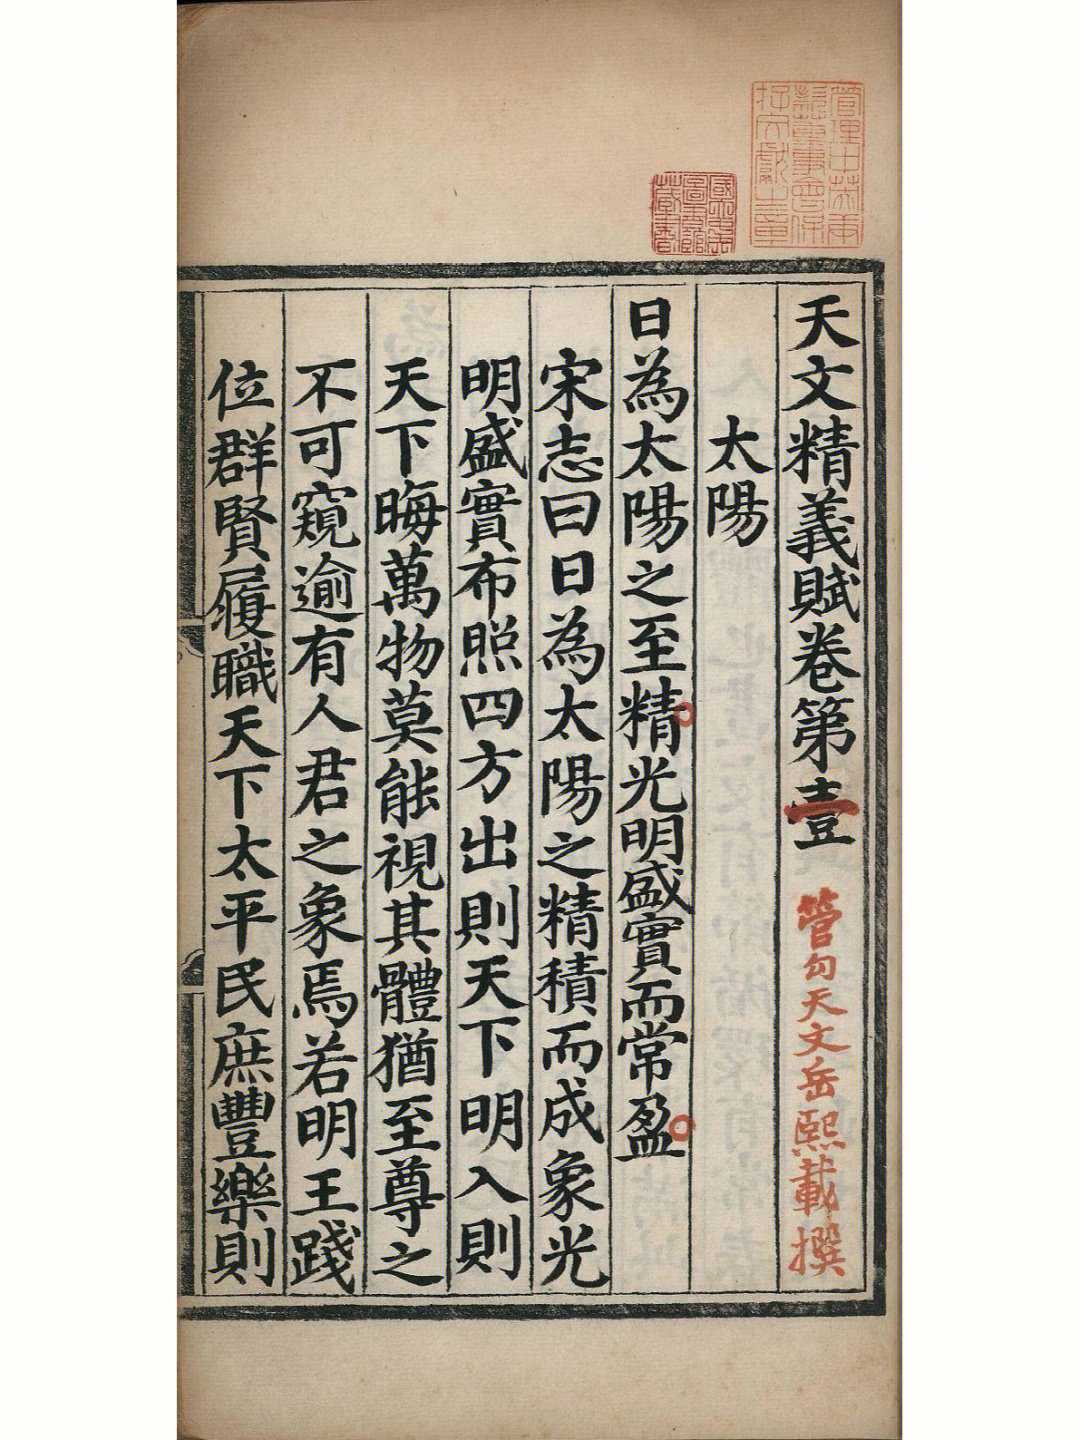 管理中英庚
款董事會保
存文獻之章
國立中央
圖書館
藏書
天文精義賦卷第壹 管勾天文岳熙載撰
太陽
日為太陽之至精。光明盛實而常盈。
宋志曰日為太陽之精積而成象光
明盛實布照四方出則天下明入則
天下晦萬物莫能視其體猶至尊之
不可窺逾有人君之象焉若明王踐
位群賢履職天下太平民庶豐樂則